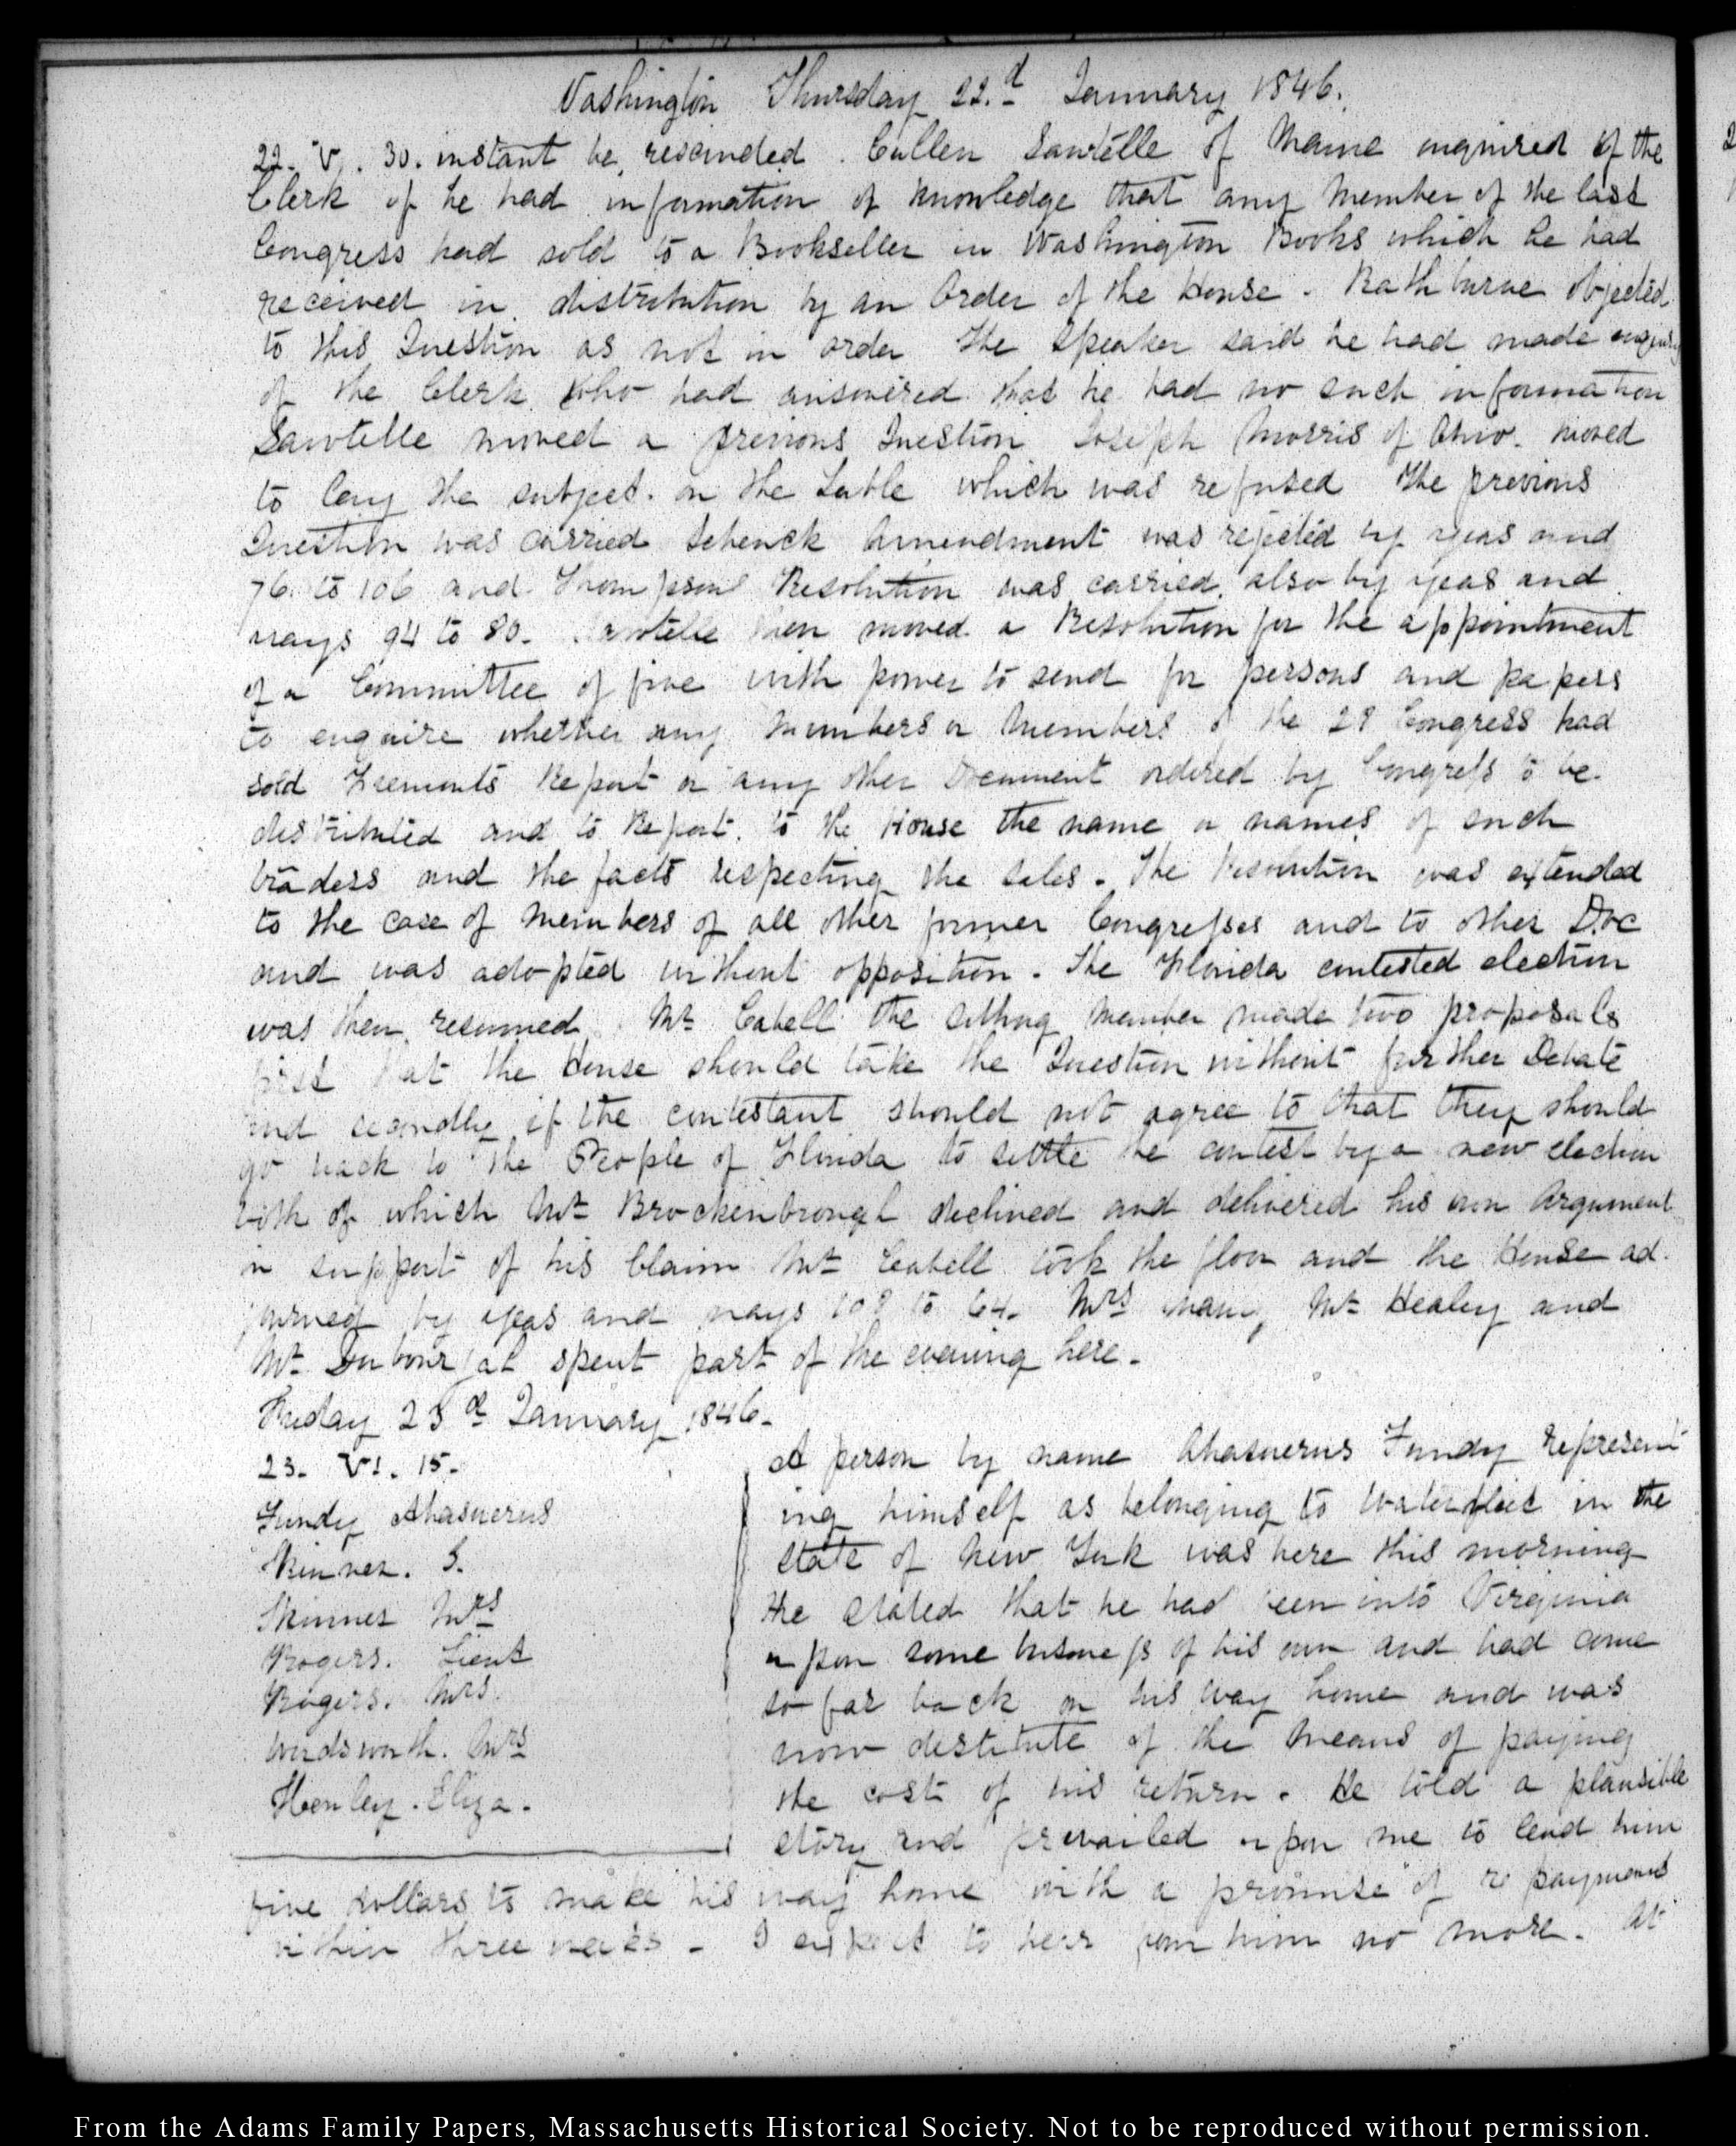 Washington Thursday 22.d January 1846.
22. V. 30. instant be rescinded. Cullen Sawtelle of Maine enquired of the
Clerk if he had information of knowledge that any Member of the last
Congress had sold to a Bookseller in Washington Books which he had
received in distribution by an Order of the House. Rathburne objected
to this Question as not in order the Speaker said he had made enquiry
of the Clerk who had answered that he had no such information
Sawtelle moved a previous Question Joseph Morris of Ohio. moved
to lay the subject. on the Table which was refused the previous
Question was carried Schenck Amendment was rejected by yeas and
76. to 106 and Thompson's Resolution was carried, also by yeas and
nays 94 to 80. Sawtelle then moved a Resolution for the appointment
of a Committee of five with power to send for persons and papers
to enquire whether any Members or Members of the 28 Congress had
sold Fremonts Report or any other Document ordered by Congress to be
distributed and to Report. to the House the name or names of such
traders and the facts respecting the sales. The Resolution was extended
to the case of Members of all other former Congresses and to other Doc
and was adopted without opposition. The Florida contested election
was then resumed Mr Cabell the sitting Member made two proposals
first that the House should take the Question without further Debate
and secondly if the contestant should not agree to that they should
go back to the People of Florida to settle the contest by a new election
both of which Mr Brockenbrough declined and delivered his own Argument
in support of his Claim Mr Cabell took the floor and the House ad.
journed by yeas and nays 108 to 64. Mrs Mr Healey and
Mr spent part of the evening here.
Friday 23d January 1846.
23. VI. 15.
Fundy Ahasuerus
Skinner. S.
Skinner Mrs
Rogers. Lieut
Rogers. Mrs.
Wordsworth. Mrs
Henley. Eliza.
A person by name Ahasuerus Fundy represent
ing himself as belonging to Watervliet in the
State of New York was here this morning
He stated that he had been into Virginia
upon some business of his own and had come
so far back on his way home and was
now destitute of the means of paying
the cost of his return. He told a plausible
story and prevailed upon me to lend him
five dollars to make his way home with a promise of re payment
within three weeks. I expect to hear from him no more. At
From the Adams Family Papers, Massachusetts Historical Society. Not to be reproduced without permission.